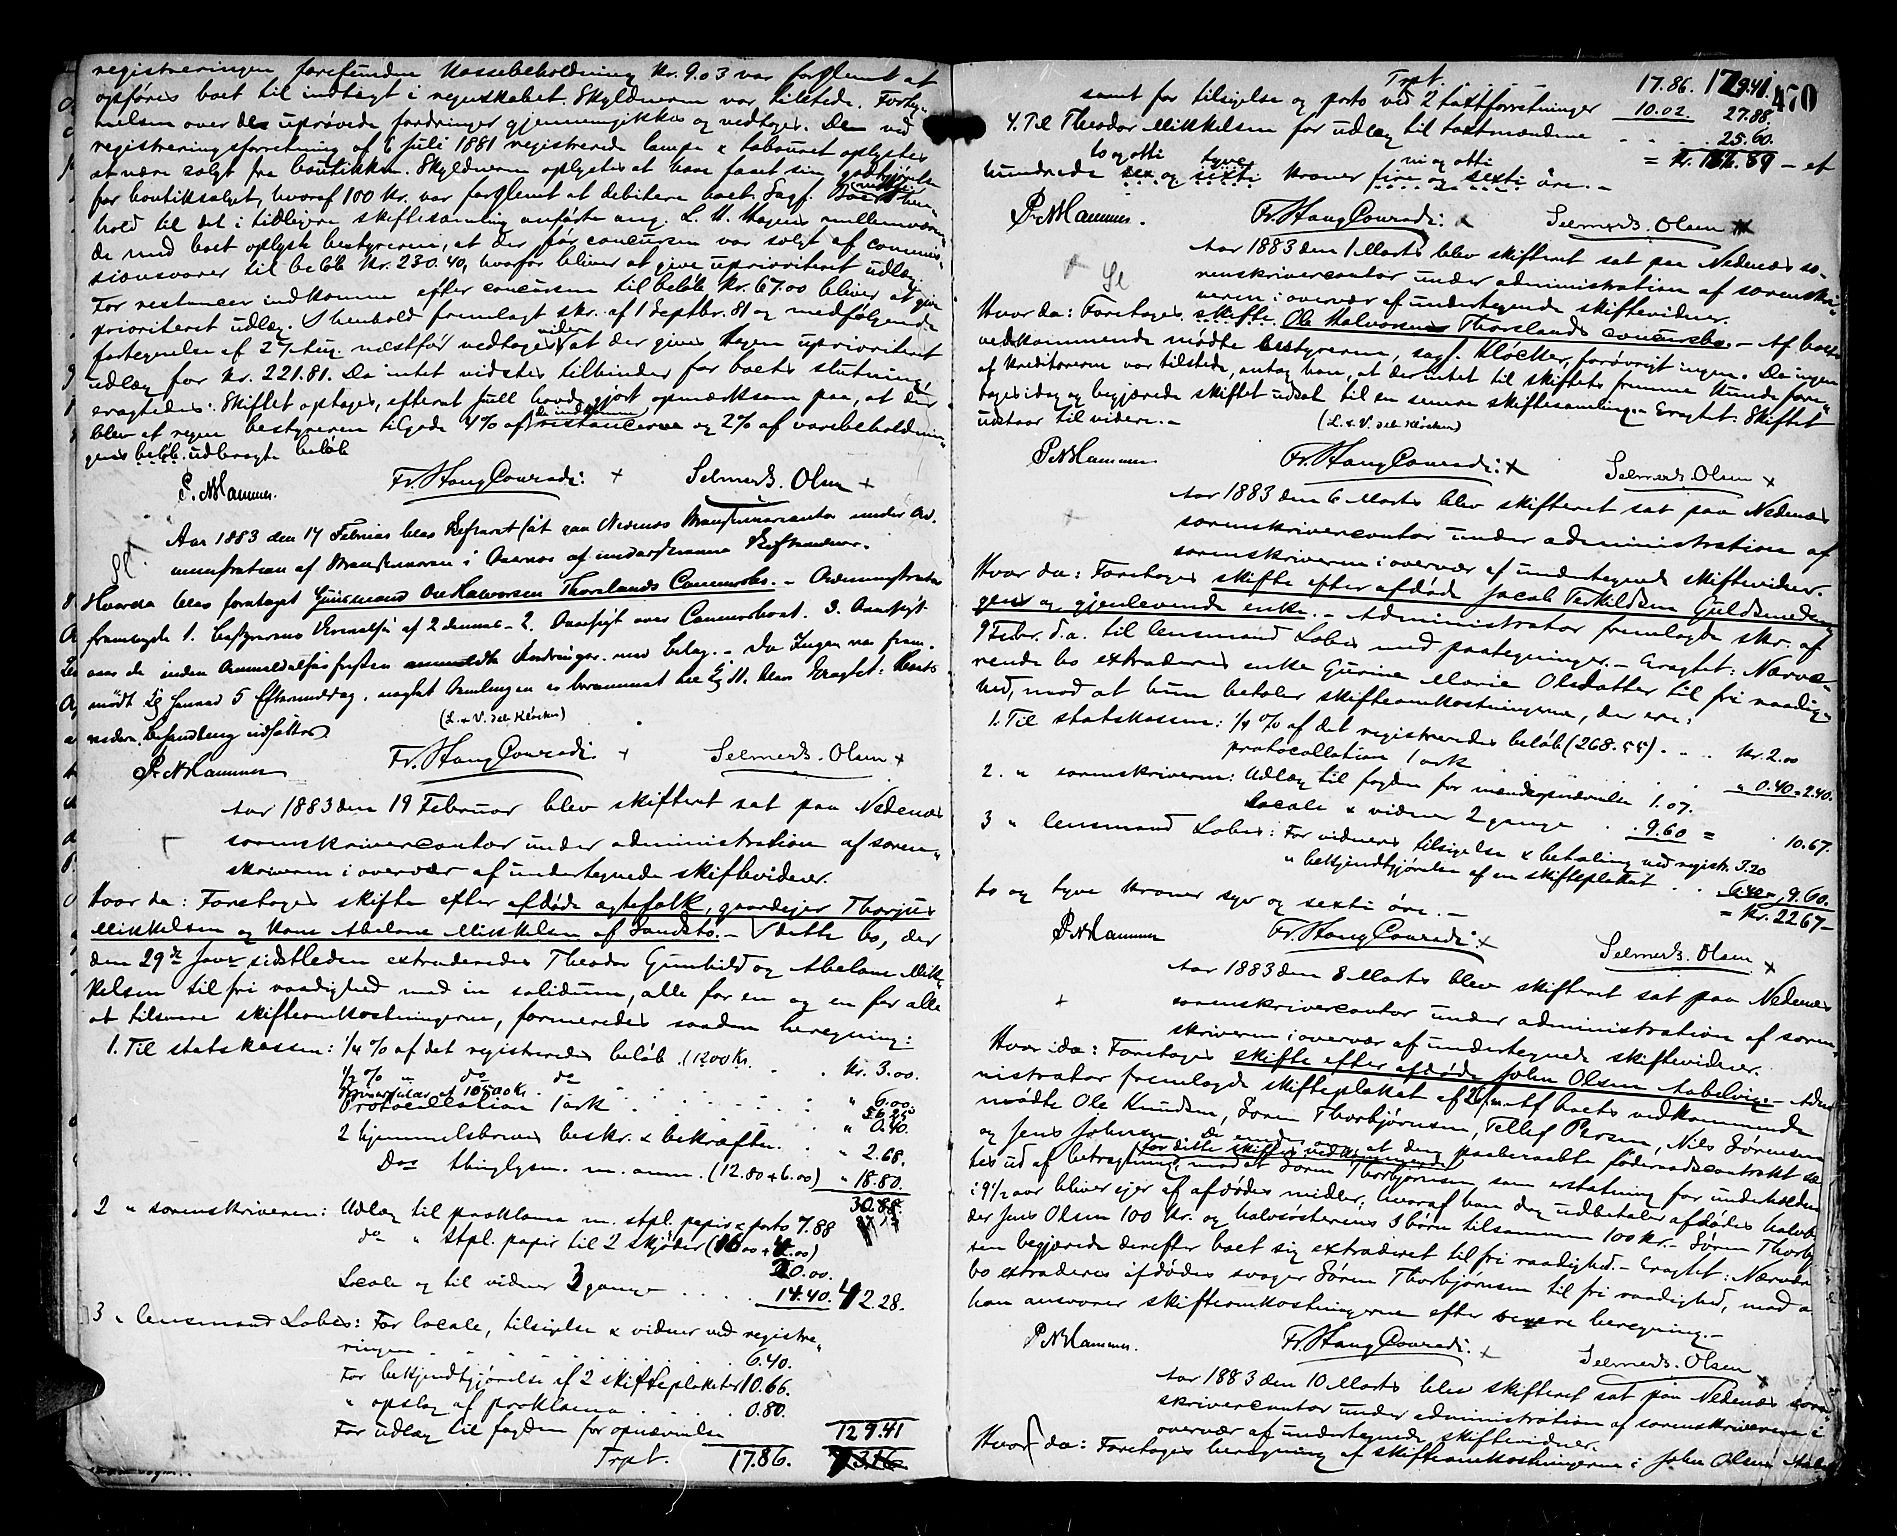 registreringen forefundne kassebeholdning kr. 9.03 var forglemt at
opføres boet til indtægt i regnskabet. Skyldneren var tilstede. Forteg-
nelsen over de uprøvede fordringer gjennemgikkes og vedtoges. Den ved
registreringsforretning af 6 juli 1881 registrerede lampe & tabouret oplystes
at være solgt fra boutikken. Skyldneren oplystes at have faaet sin godtgjørelse
for boutiksalget, hvoraf 100 kr. var forglemt at debitere boet. Sagf.
hold til det i tidligere skiftesamling anførte ang. L. H. Hagens mellemværen-
de med boet oplyste bestyreren, at der før concursen var solgt af commis-
sionsvarer til beløb kr. 230.40, hvorfor bliver at give uprioriteret udlæg.
For restancer indkomne efter concursen til beløb kr. 67.00 bliver at give
prioriteret udlæg. I henhold fremlagt skr. af 1 septbr. 81 og medfølgende
fortegnelse af 27 Aug. næstfør vedtoges videre at der gives Hagen uprioriteret
udlæg for kr. 221.81. Da intet vidstes tilbinder for boets slutning,
eragtedes: Skiftet optages, efterat full havde gjort opmærksom paa, at der
blev at regne bestyreren tilgode 4% af de indkomne restancerne og 2% af varebeholdnin-
gens beløb. udbragte beløb
P. N. Hammer. Fr. Stang Conradi: + Selmer B. Olsen +
Aar 1883 den 17 Februar blev Skifteret sat paa Nedenes Sorenskrivercontor under Ad-
ministration af Sorenskriveren i Overvær af undertegnede Skiftevidner.
Hvorda blev foretaget Gaardmand Ole Halvorsen Thorslands Concursbo. – Administrator
fremlagde 1. bestyrerens Skrivelse af 2 dennes – 2. Oversigt over Concursboet. 3. Oversigt
over de inden Anmeldelsesfristen anmeldte Fordringer med Bilag. – Da Ingen var frem-
mødt Kl. 5 Eftermiddag, uagtet Samlingen er berammet til Kl. 11, blev Eragtet: Boets
videre Behandling udsættes.
(L. & V. del. Kløcker)
P. N. Hammer Fr. Stang Conradi: + Selmer B. Olsen +
Aar 1883 den 19 Februar blev skifteret sat paa Nedenes
sorenskrivercontor under administration af soren-
skriveren i overvær af undertegnede skiftevidner.
Hvor da: Foretoges skifte efter afdøde ægtefolk, gaardejer Thorjus
Mikkelsen og kone Abelone Mikkelsen af Sandstø. – I dette bo, der
den 29de Janr sidstleden extraderedes Theodor Gunhild og Abelone Mik-
kelsen til fri raadighed med in solidum, alle for en og en for alle
at tilsvare skifteomkostningerne, formeredes saadan beregning:
1. Til statskassen: 1/4 % af det registrerede beløb (1200 kr. . . kr. 3.00.
1/2 % – do do . . . . . " 6.00.
56.25
Protocollation 1 ark . . . . . " 0.40.
2 hjemmelsbreves beskr. & bekræftn. . . " 2.68.
Das thinglysn. m. anm. (12.80 + 6.00) " 18.80.
30.88.
2 " sorenskriveren: Udlæg til proklama m. stpl. papir & porto 7.88
do " stpl. papir til 2 skjøder (16.00 + 4.00)
20.00.
Locale og til vidner 3 gange . . . . 14.40. 42.28.
3 " lensmand Lobes: For locale, tilsigelse & vidner ved registre-
ringen . . . . . . 6.40.
For bekjendtgjørelse af 2 skifteplakater 10.66.
" opslag af proklama . . . 0.80.
For udlæg til fogden for opnævnelse
Trpt. 17.86. 129.41
Trpt. 17.86. 129.41 470
samt for tilsigelse og porto ved 2 taxtforretninger 10.02. 27.88.
4. Til Theodor Mikkelsen for udlæg til taxtmændene . . . 25.60.
= kr. 182.89 – et
to og otti tyve ni og otti
hundrede sex og sexti kroner fire og sexti øre. –
P. N. Hammer. Fr. Stang Conradi: + Selmer B. Olsen +
Aar 1883 den 1 Marts blev skifteret sat paa Nedenes so-
renskrivercontor under administration af sorenskri-
veren i overvær af undertegnede skiftevidner.
Hvor da: Foretoges skifte Ole Halvorsens Thorslands concursbo. – Af boets
vedkommende mødte bestyreren, sagf. Kløcker, forøvrigt ingen. Da ingen
af kreditorerne var tilstede, antog han, at der intet til skiftets fremme kunde fore-
tages idag og begjærede skiftet udsat til en senere skiftesamling. – Eragtet: Skiftet
udstaar til videre. – (L. & V. del. Kløcker)
P. N. Hammer Fr. Stang Conradi: + Selmer B. Olsen +
Aar 1883 den 6 Marts blev skifteret sat paa Nedenes
sorenskrivercontor under administration af
sorenskriveren i overvær af undertegnede skiftevidner.
Hvor da: Foretoges skifte efter afdøde Jacob Terkildsen Guldsmeden-
gen og gjenlevende enke. – Administrator fremlagde skr. af
9 Febr. d.a. til lensmand Lobes med paategninger. – Eragtet: Nærvæ-
rende bo extraderes enke Gurine Marie Olsdatter til fri raadig-
hed, mod at hun betaler skifteomkostningerne, der ere:
1. Til statskassen: 1/4 % af det registrerede beløb (268.55) . . . kr. 2.00
protocollation 1 ark . . " 0.40 = 2.40.
2. " sorenskriveren: Udlæg til fogden for mændsopnævnelse 1.07.
Locale & vidner 2 gange . . 9.60 = . 10.67.
3 " lensmand Lobes: For vidners tilsigelse & betaling ved registr. 3.20
" bekjendtgjørelse af en skifteplakat . . 6.40 = 9.60.
= kr. 22.67 –
to og tyve kroner syv og sexti øre. –
P. N. Hammer Fr. Stang Conradi: + Selmer B. Olsen +
Aar 1883 den 8 Marts blev skifteret sat paa Nedenes
sorenskrivercontor under administration af soren-
skriveren i overvær af undertegnede skiftevidner.
Hvor da: Foretoges skifte efter afdøde John Olsen Aabelvig. – Admi-
nistrator fremlagde skifteplakat af Af boets vedkommende
mødte Ole Knudsen, Søren Thorbjørnsen, Tellef Persen, Niels Sørensen
og Jens Johnsen, de enedes om at den paaberaabte føderaadscontrakt sæt-
tes ud af betragtning for dette skiftes vedkommende, mod at Søren Thorbjørnsen som erstatning for underholdet
i 9 1/2 aar bliver ejer af afdødes midler, hvoraf han dog udbetaler afdødes halvbro-
der Jens Olsen 100 kr. og halvsøsterens 3 børn tilsammen 100 kr. – Søren Thorbjørn-
sen begjærede derefter boet sig extraderet til fri raadighed. – Eragtet: Nærværende
bo extraderes afdødes svoger Søren Thorbjørnsen til fri raadighed, mod at
han ansvarer skifteomkostningerne efter senere beregning. –
P. N. Hammer. Fr. Stang Conradi: + Selmer B. Olsen +
Aar 1883 den 10 Marts blev skifteret sat paa Nedenes soren-
skrivercontor under administration af sorenskriveren i
overvær af undertegnede skiftevidner.
Hvor da: Foretoges beregning af skifteomkostningerne i John Olsen